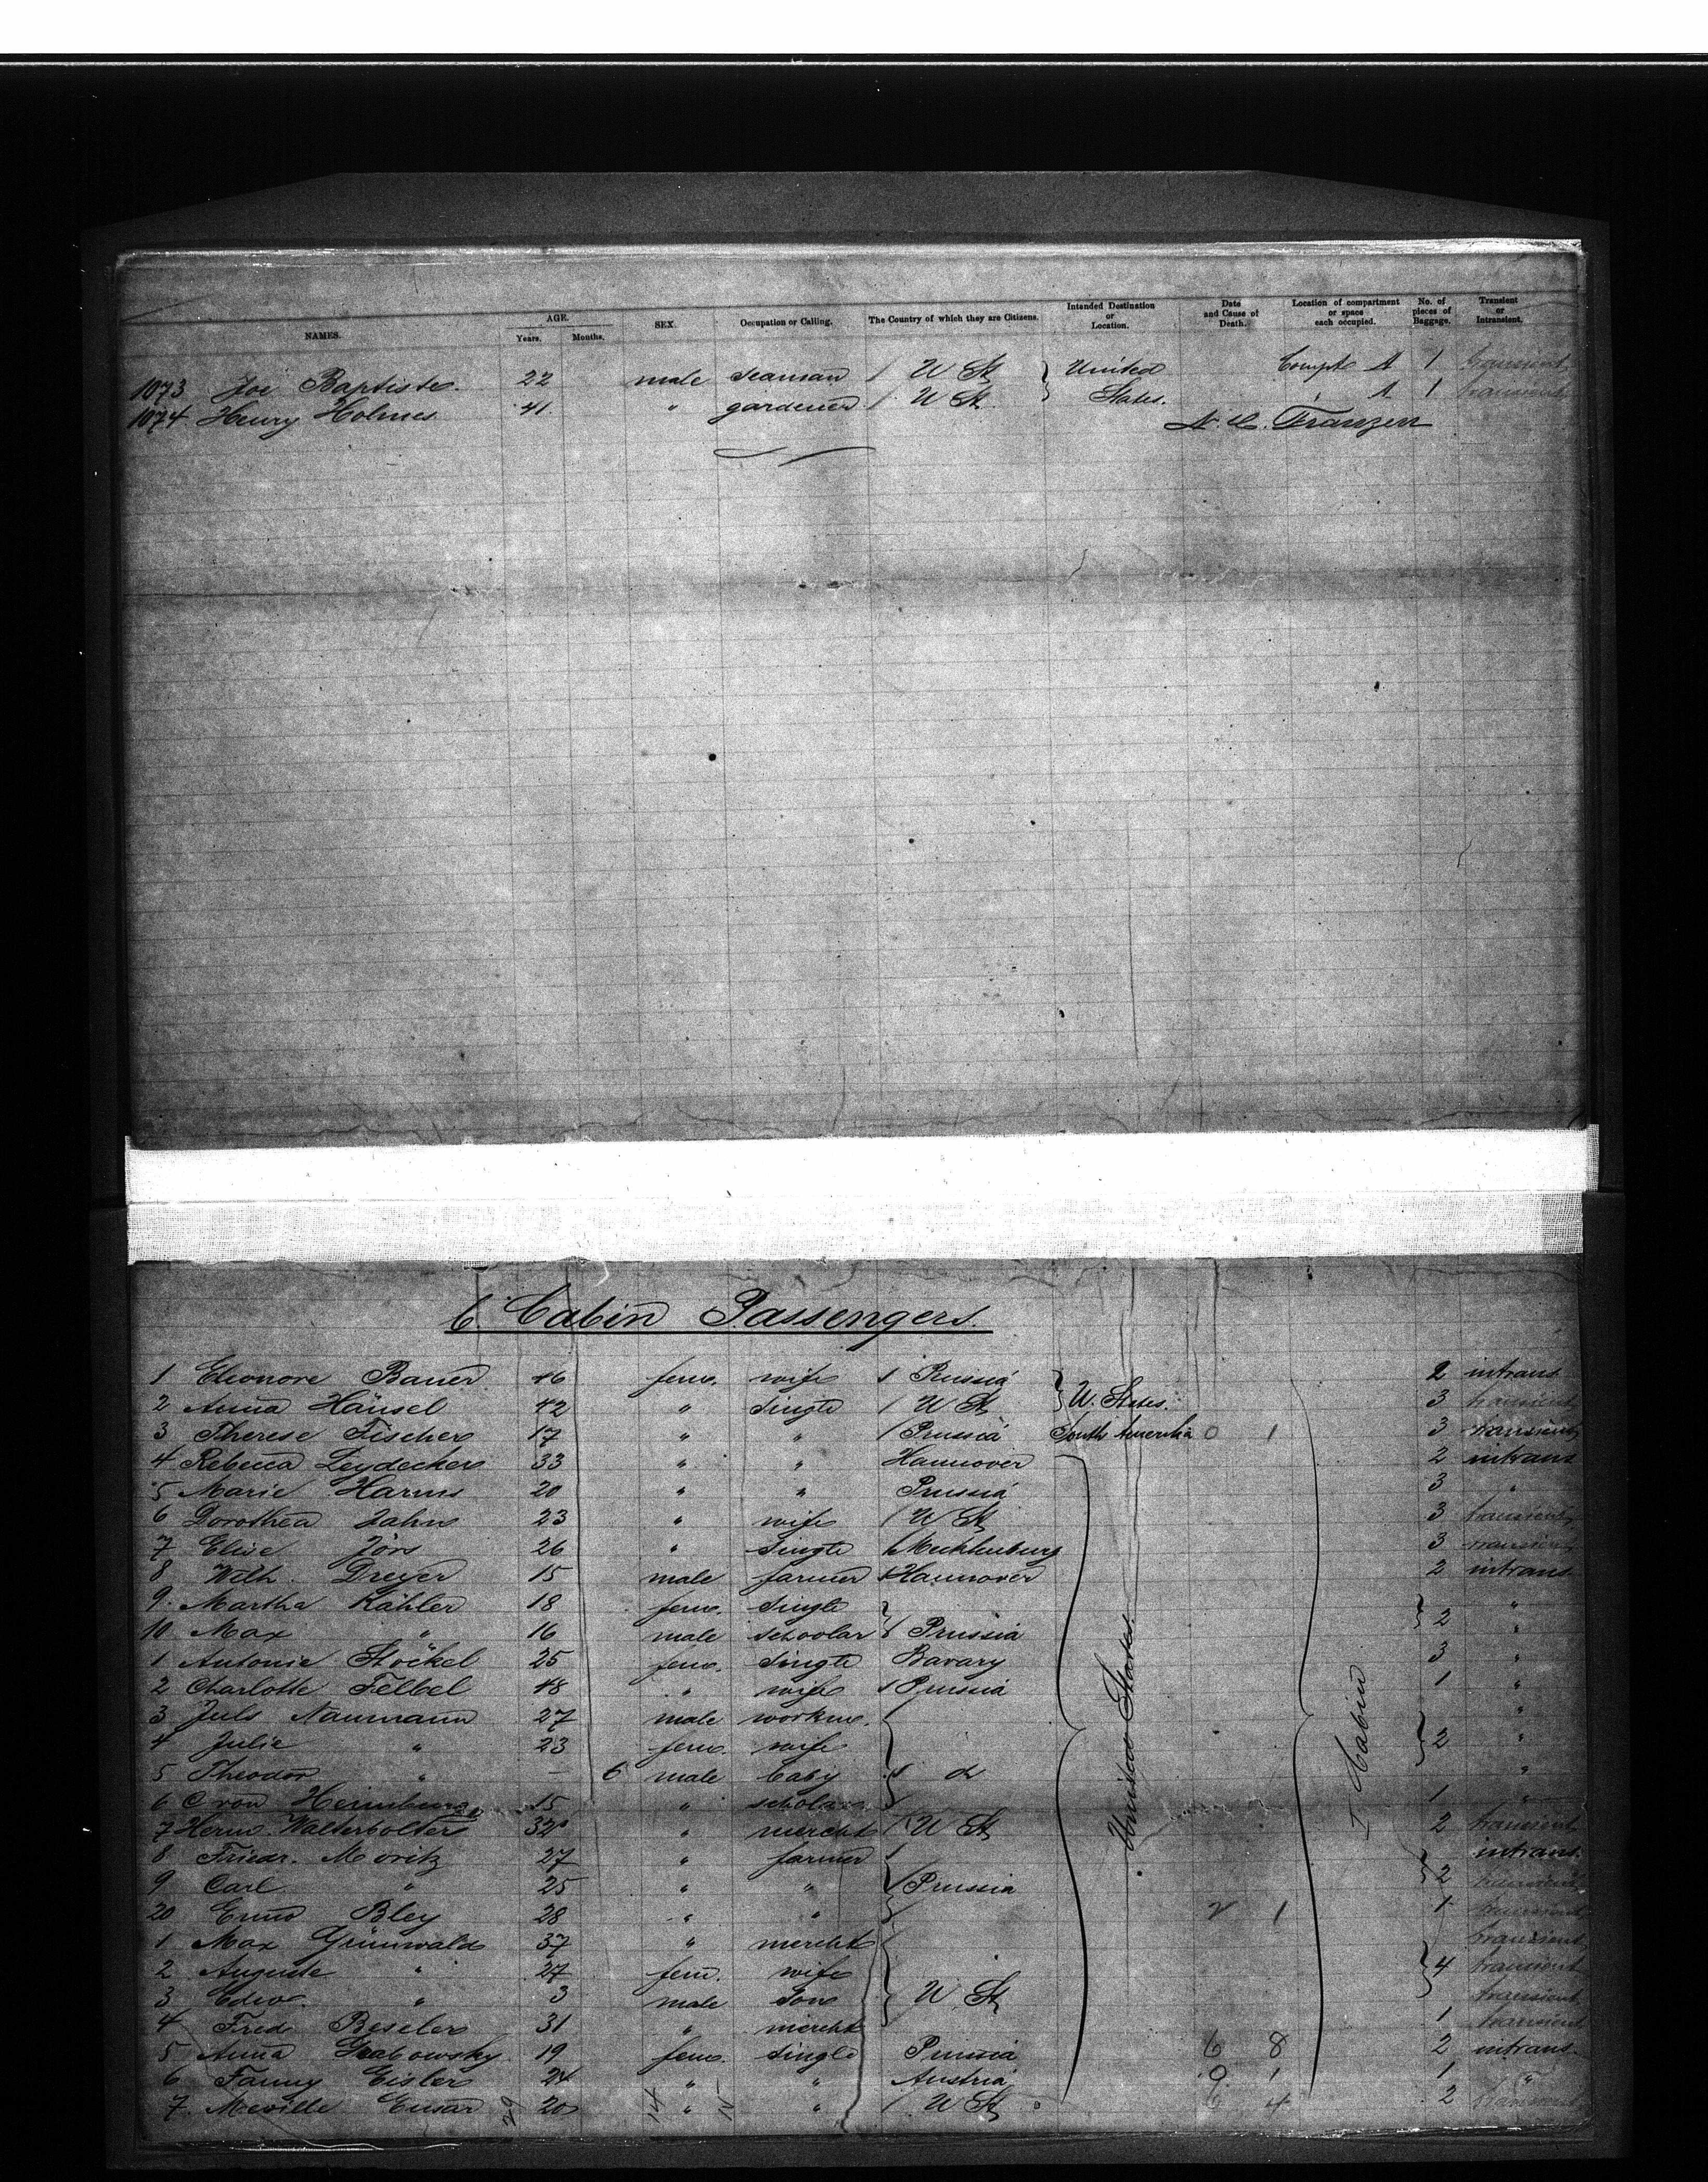 NAMES. AGE. Years. Months. SEX. Occupation or Calling. The Country of which they are Citizens. Intended Destination or Location. Date and Cause of Death. Location of compartment or space each occupied. No. of pieces of Baggage. Transient or Intransient.
1073 Joe Baptiste. 22 male seaman / W St } United Compt A 1 transient
1074 Henry Holmes 41 " gardener / W St } States. " A 1 transient
A. C. Franzen
Cabin Passengers.
1 Eleonore Bauer 46 fem. wife / Prussia 2 intrans
2 Anna Hänsel 42 " single / U St } U. States. 3 transient
3 Therese Fischer 17 " " / Prussia South Amerika 0 1 3 transient
4 Rebecca Leydecker 33 " " Hannover 2 intrans
5 Marie Harms 20 " " Prussia 3 "
6 Dorothea Jahn 23 " wife / U St 3 transient
7 Elise Jörs 26 " single / Mecklenburg 3 transient
8 Wilh. Dreyer 15 male farmer Hannover 2 intrans.
9. Martha Kähler 18 fem. single "
10 Max " 16 male schoolar Prussia } 2 "
1 Antonie Stöckel 25 fem. single Bavary 3 "
2 Charlotte Felbel 48 " wife / Prussia 1 "
3 Juls Naumann 27 male workm. "
4 Julie " 23 fem. wife } 2 "
5 Theodor " — 6 male baby "
6 C von 15 " scholar 1 "
7 Herm. Walterbolter 32 " mercht / U St 2 transient
8 Friedr. Moritz 27 " farmer intrans.
9 Carl " 25 " " / Prussia } 2
20 Enno Bley 28 " " 2 1 1 transient
1 Max Grünwald 37 " mercht transient
2 Auguste " 27 fem. wife } 4 transient
3 Edw. " 3 male son U St transient
4 Fred Beseler 31 " mercht 1 transient
5 Anna Grabowsky 19 fem. single Prussia 6 8 2 intrans.
6 Fanny Eisler 24 " " Austria 9. 1 1 "
7. 20 " " / U St 4 2 transient
United States.
I Cabin
29 14 15